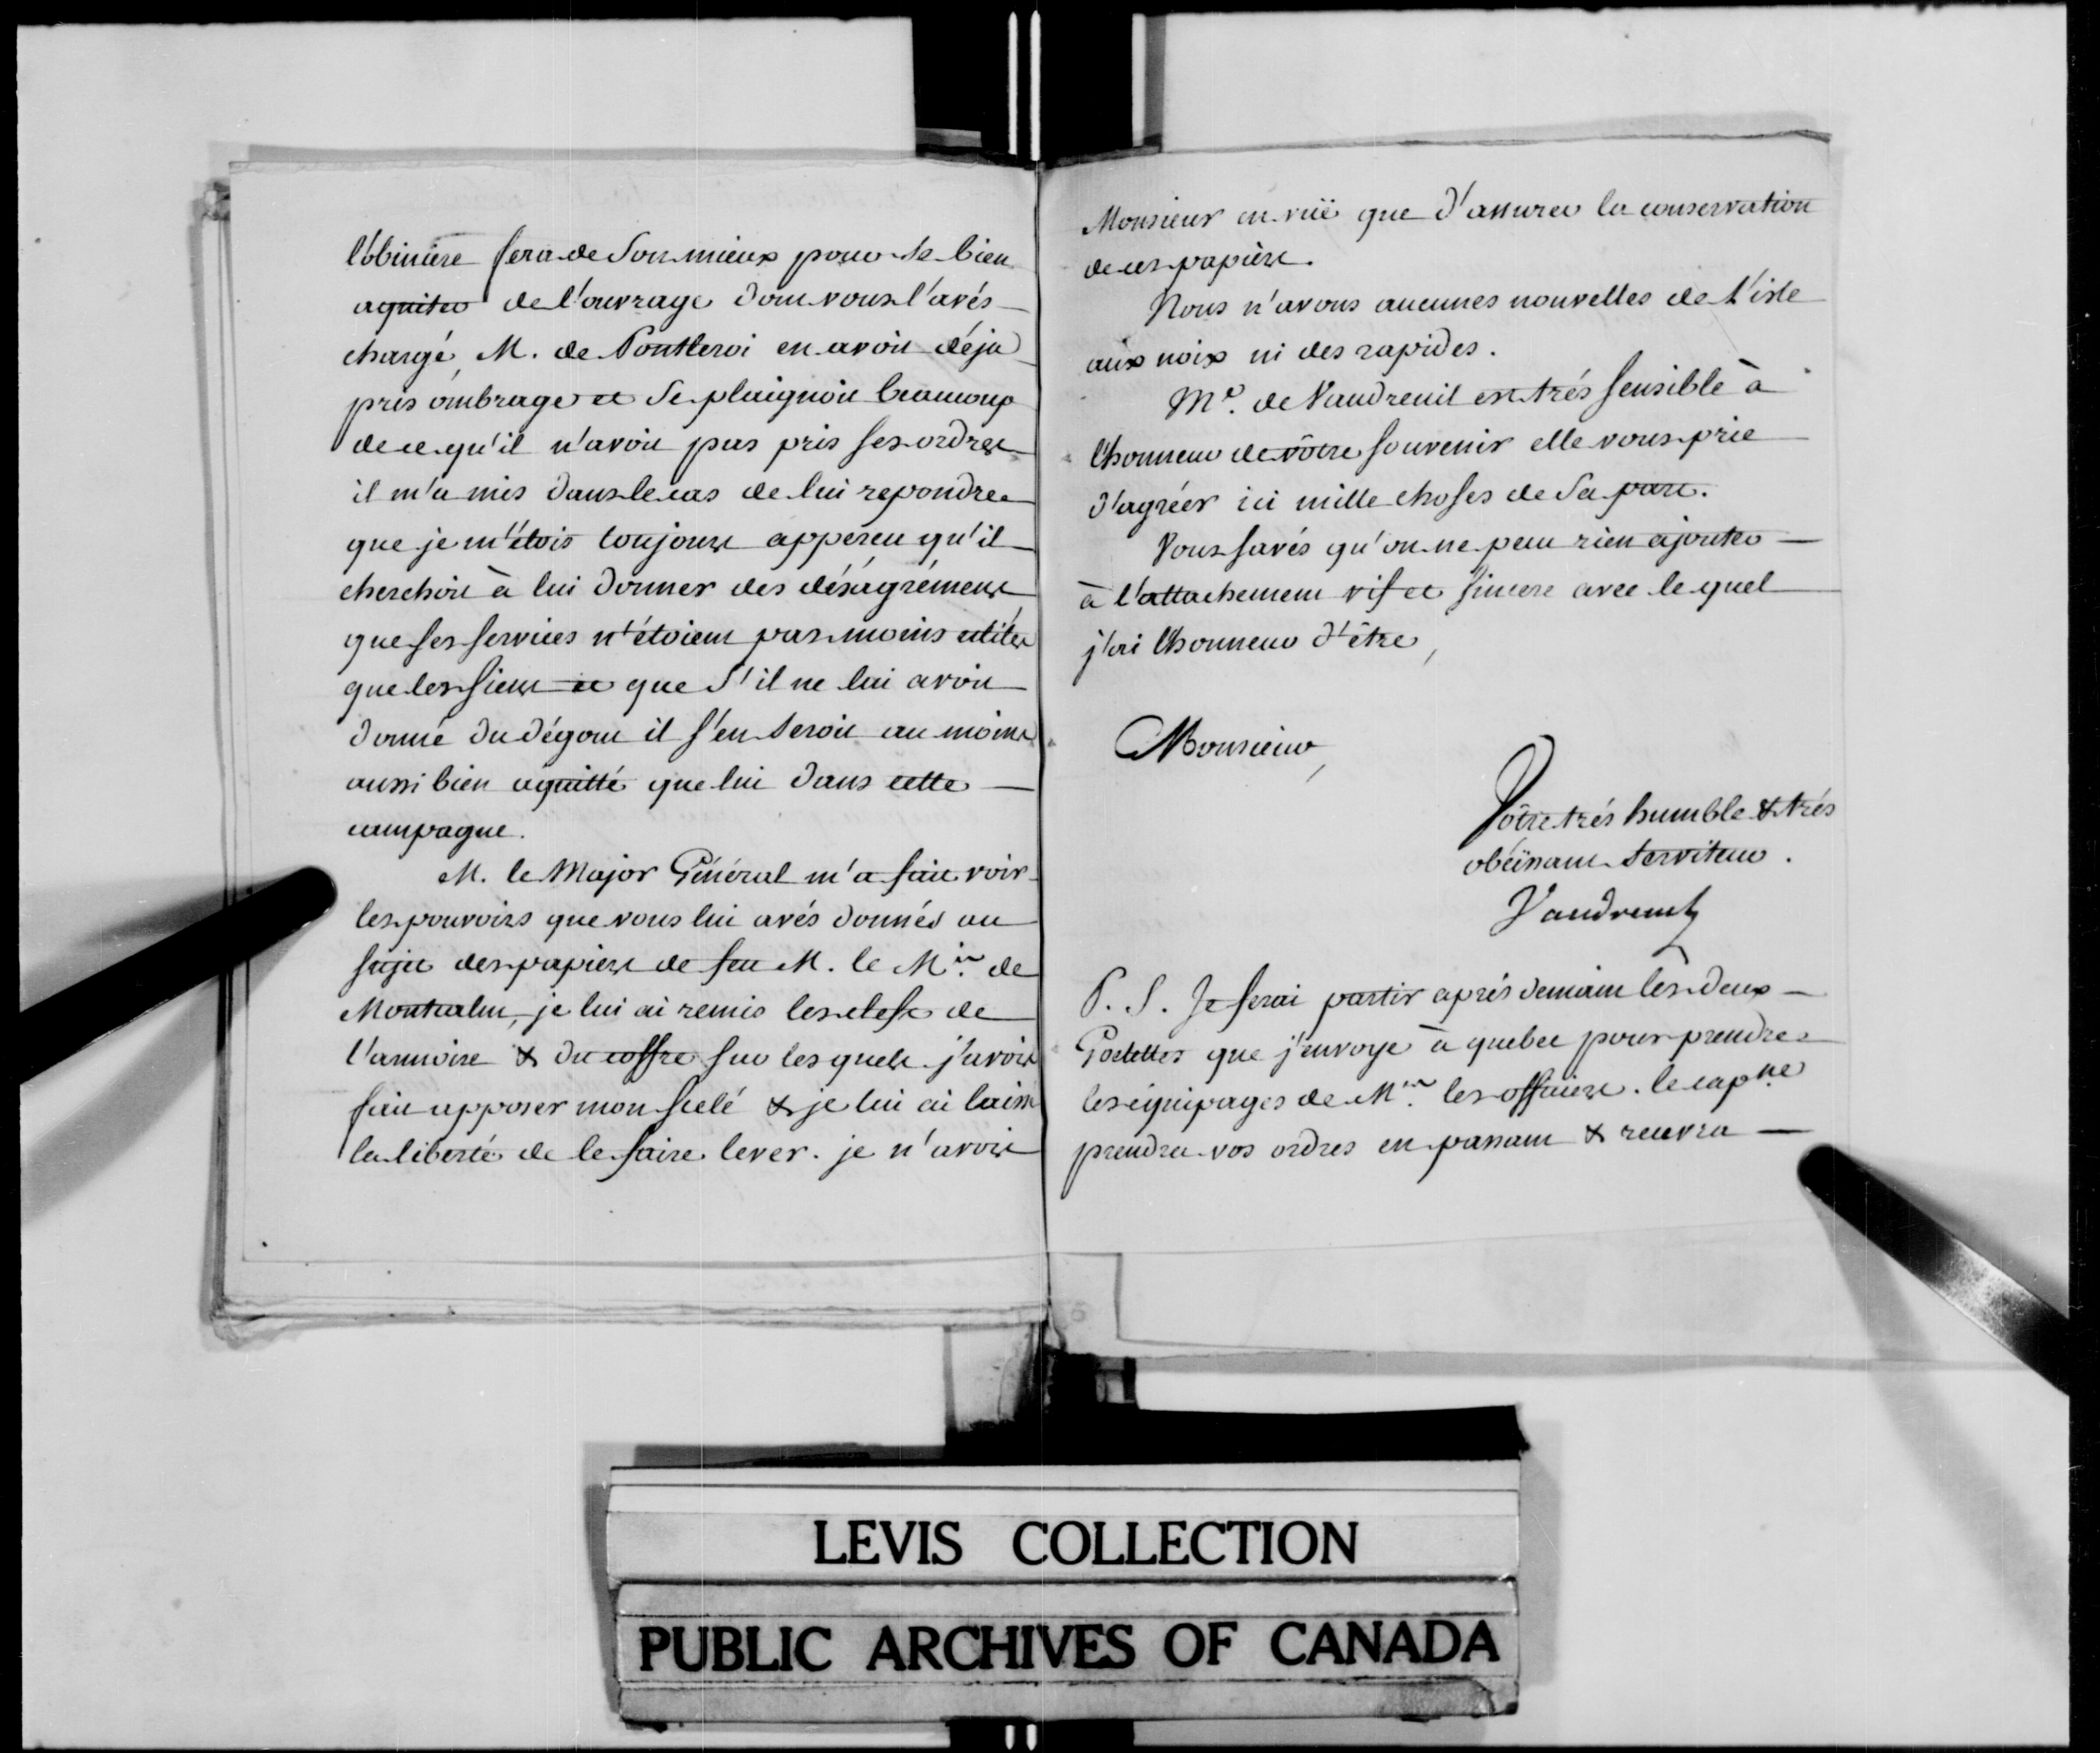 l'obiniere fera de son mieux pour se bien
aquiter de l'ouvrage dont vous l'avés
chargé, M. de Pontleroi en avoit déja
pris ombrage et se plaignoit beaucoup
de ce qu'il n'avoit pas pris ses ordres
il m'a mis dans le cas de lui repondre
que je m'étois toujours apperçu qu'il
cherchoit à lui donner des désagrémens
que ses services n'étoient pas moins utiles
que les siens et que s'il ne lui avoit
donné du dégout il s'en seroit au moins
aussi bien aquitté que lui dans cette
campagne.
M. le Major Général m'a fait voir
les pouvoirs que vous lui avés donnés au
sujet des papiers de feu M. le Mis. de
Montcalm, je lui ai remis les clefs de
l'armoire & du coffre sur les quels j'avois
fait apposer mon scelé & je lui ai laissé
la liberté de le faire lever. je n'avois
Monsieur en vuë que d'assurer la conservation
de ces papiers.
Nous n'avons aucunes nouvelles de l'isle
aux noix ni des rapides.
Me. de Vaudreuil est trés sensible à
l'honneur de vôtre souvenir elle vous prie
d'agréér ici mille choses de sa part.
Vous savés qu'on ne peut rien ajouter
à l'attachement vif et sincere avec le quel
j'ai l'honneur d'être,
Monsieur,
Vôtre trés humble & trés
obéïssant serviteur.
Vaudreuil
P. S. Je ferai partir aprés demain les deux
Goelettes que j'envoye à quebec pour prendre
les équipages de Mrs. les officiers. le capne
prendra vos ordres en passant & recevra
LEVIS COLLECTION
PUBLIC ARCHIVES OF CANADA